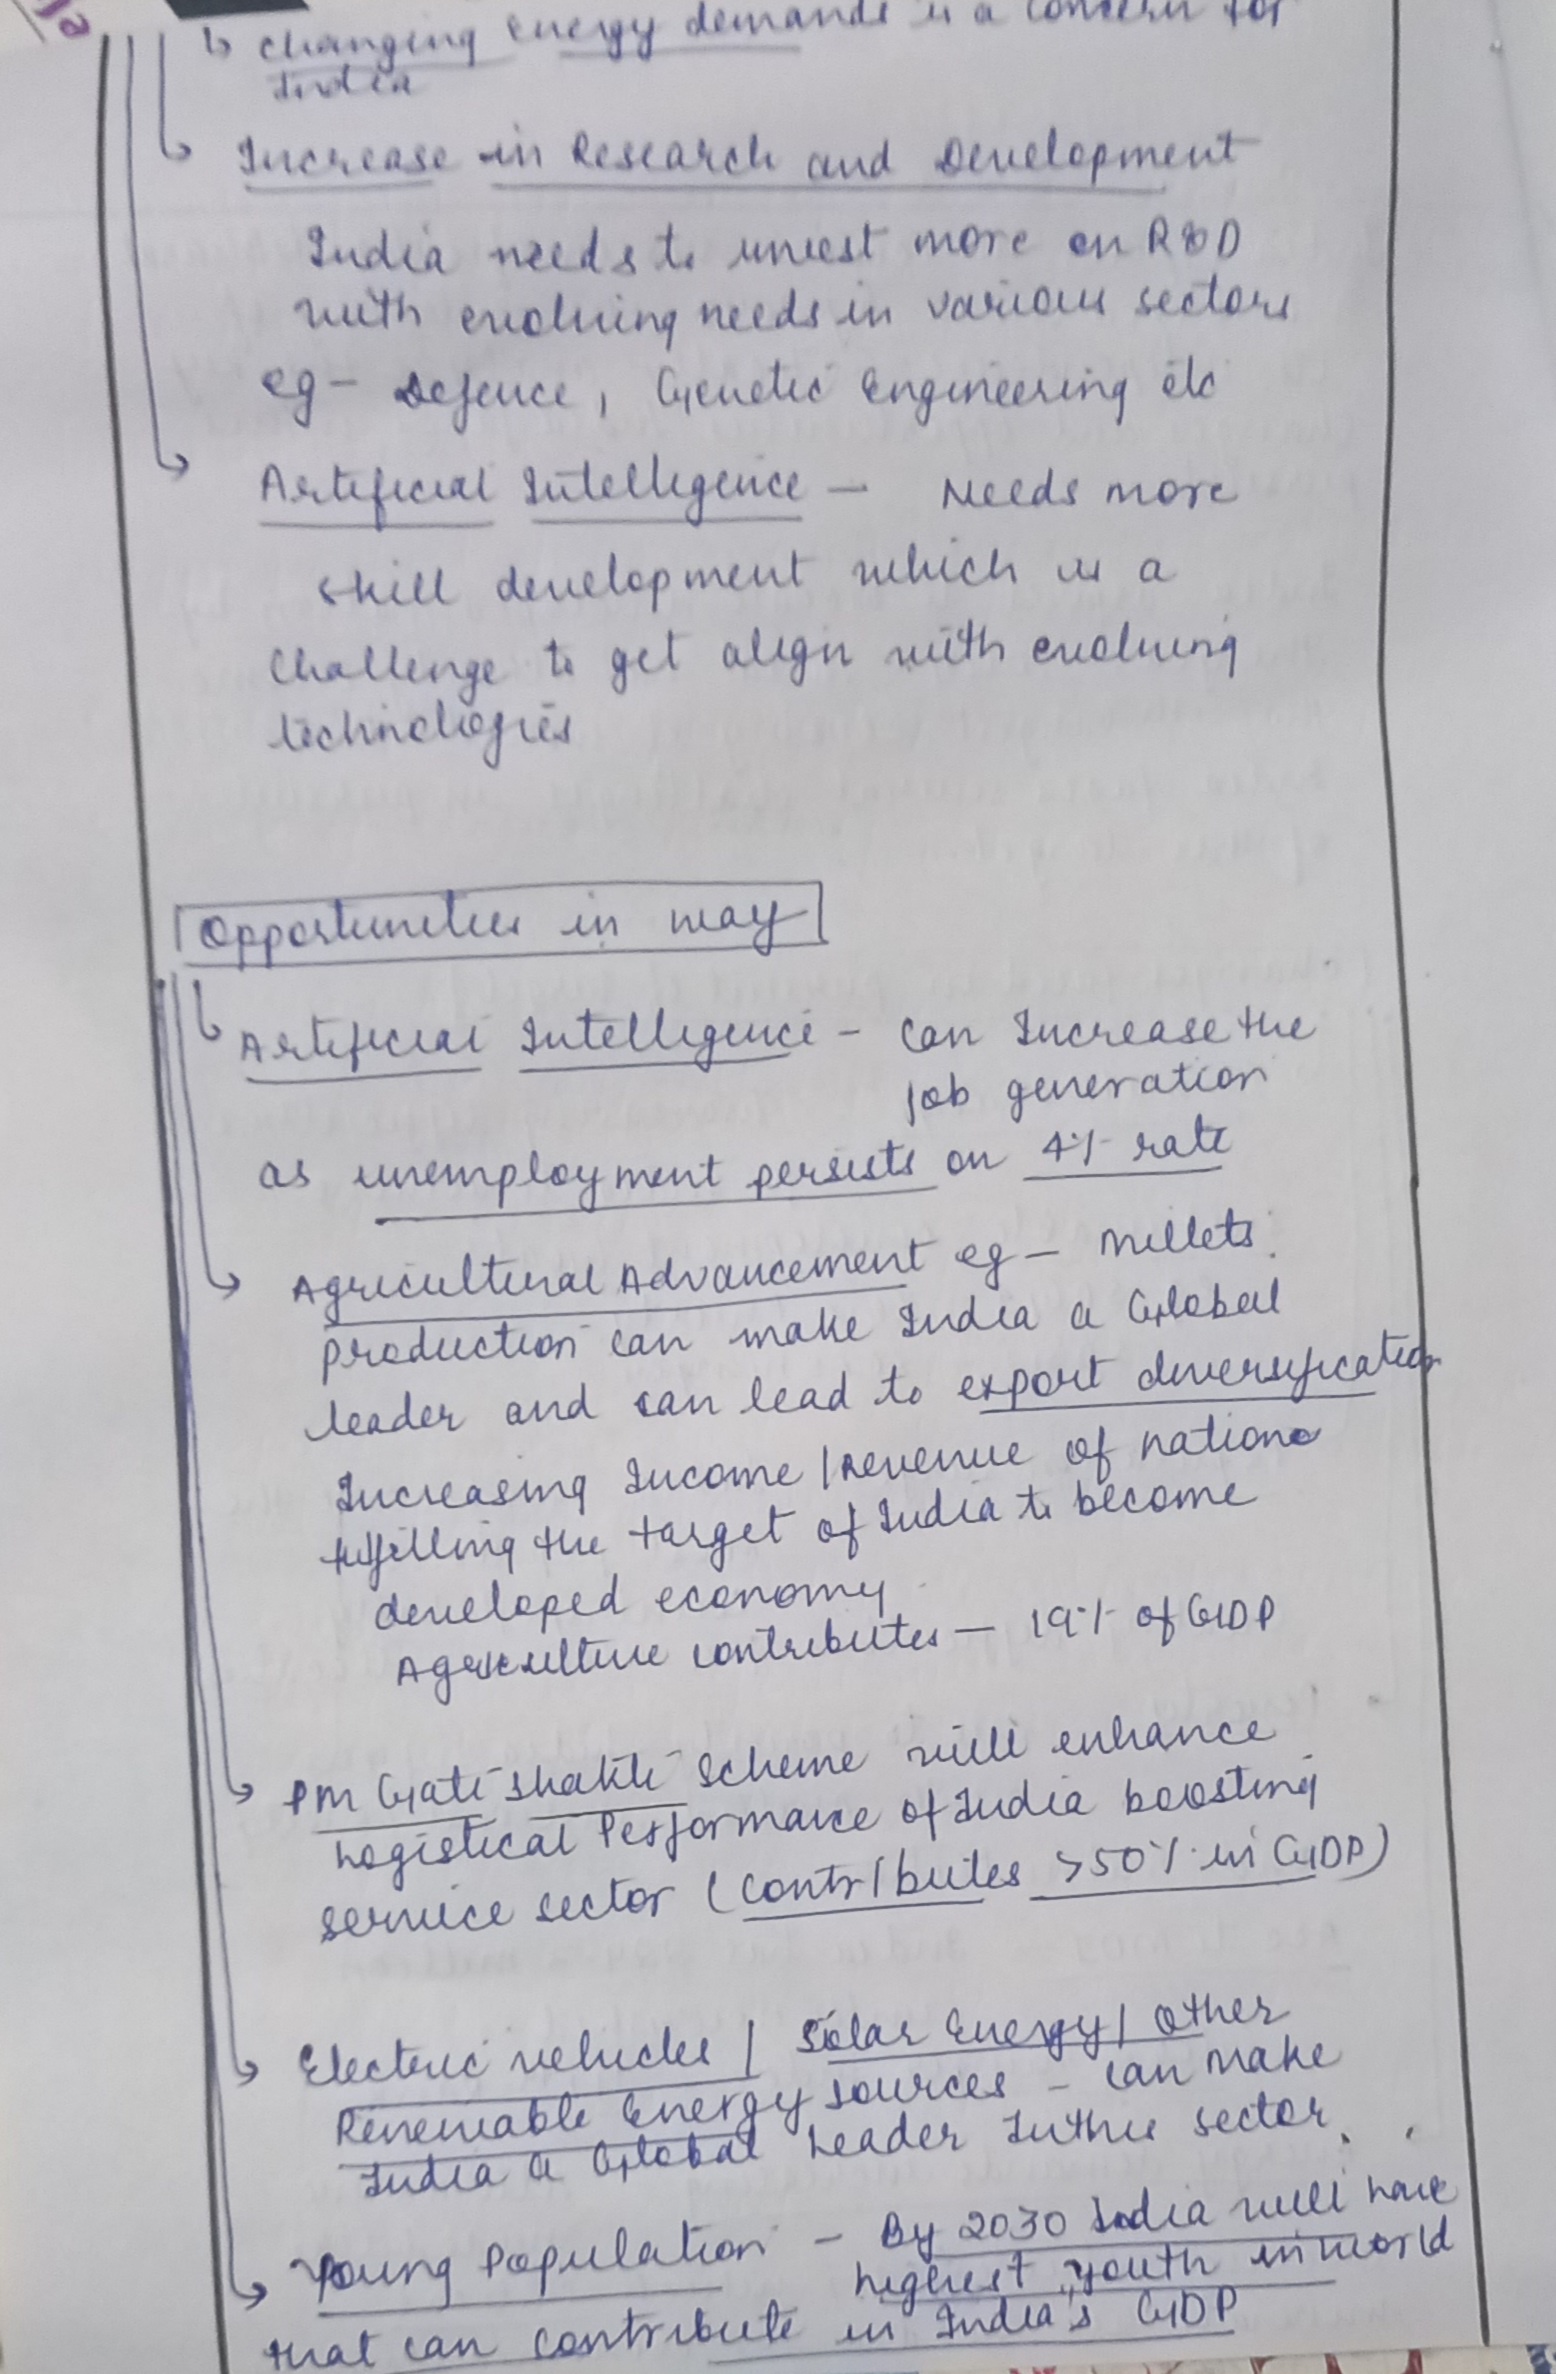 ↳ changing energy demands is a concern for
India
↳ Increase in Research and Development
India needs to invest more on R&D
with evolving needs in various sectors
eg - Defence, Genetic Engineering etc
↳ Artificial Intelligence - Needs more
skill development which is a
challenge to get align with evolving
technologies
Opportunities in way
↳ Artificial Intelligence - can Increase the
job generation
as unemployment persists on 4% rate
↳ Agricultural Advancement eg - Millets
production can make India a Global
leader and can lead to export diversification
Increasing Income / revenue of nation
fulfilling the target of India to become
developed economy
Agriculture contributes - 19% of GDP
↳ PM Gati Shakti Scheme will enhance
Logistical Performance of India boosting
service sector (contributes >50% in GDP)
↳ Electric vehicles / Solar Energy / Other
Renewable Energy sources - can make
India a Global Leader In this sector.
↳ Young Population - By 2030 India will have
highest youth in world
that can contribute in India's GDP